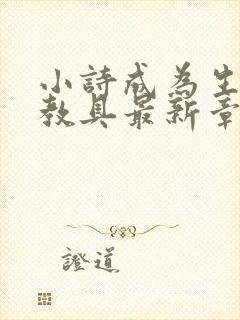 小詩成為生
教具最新章
證道